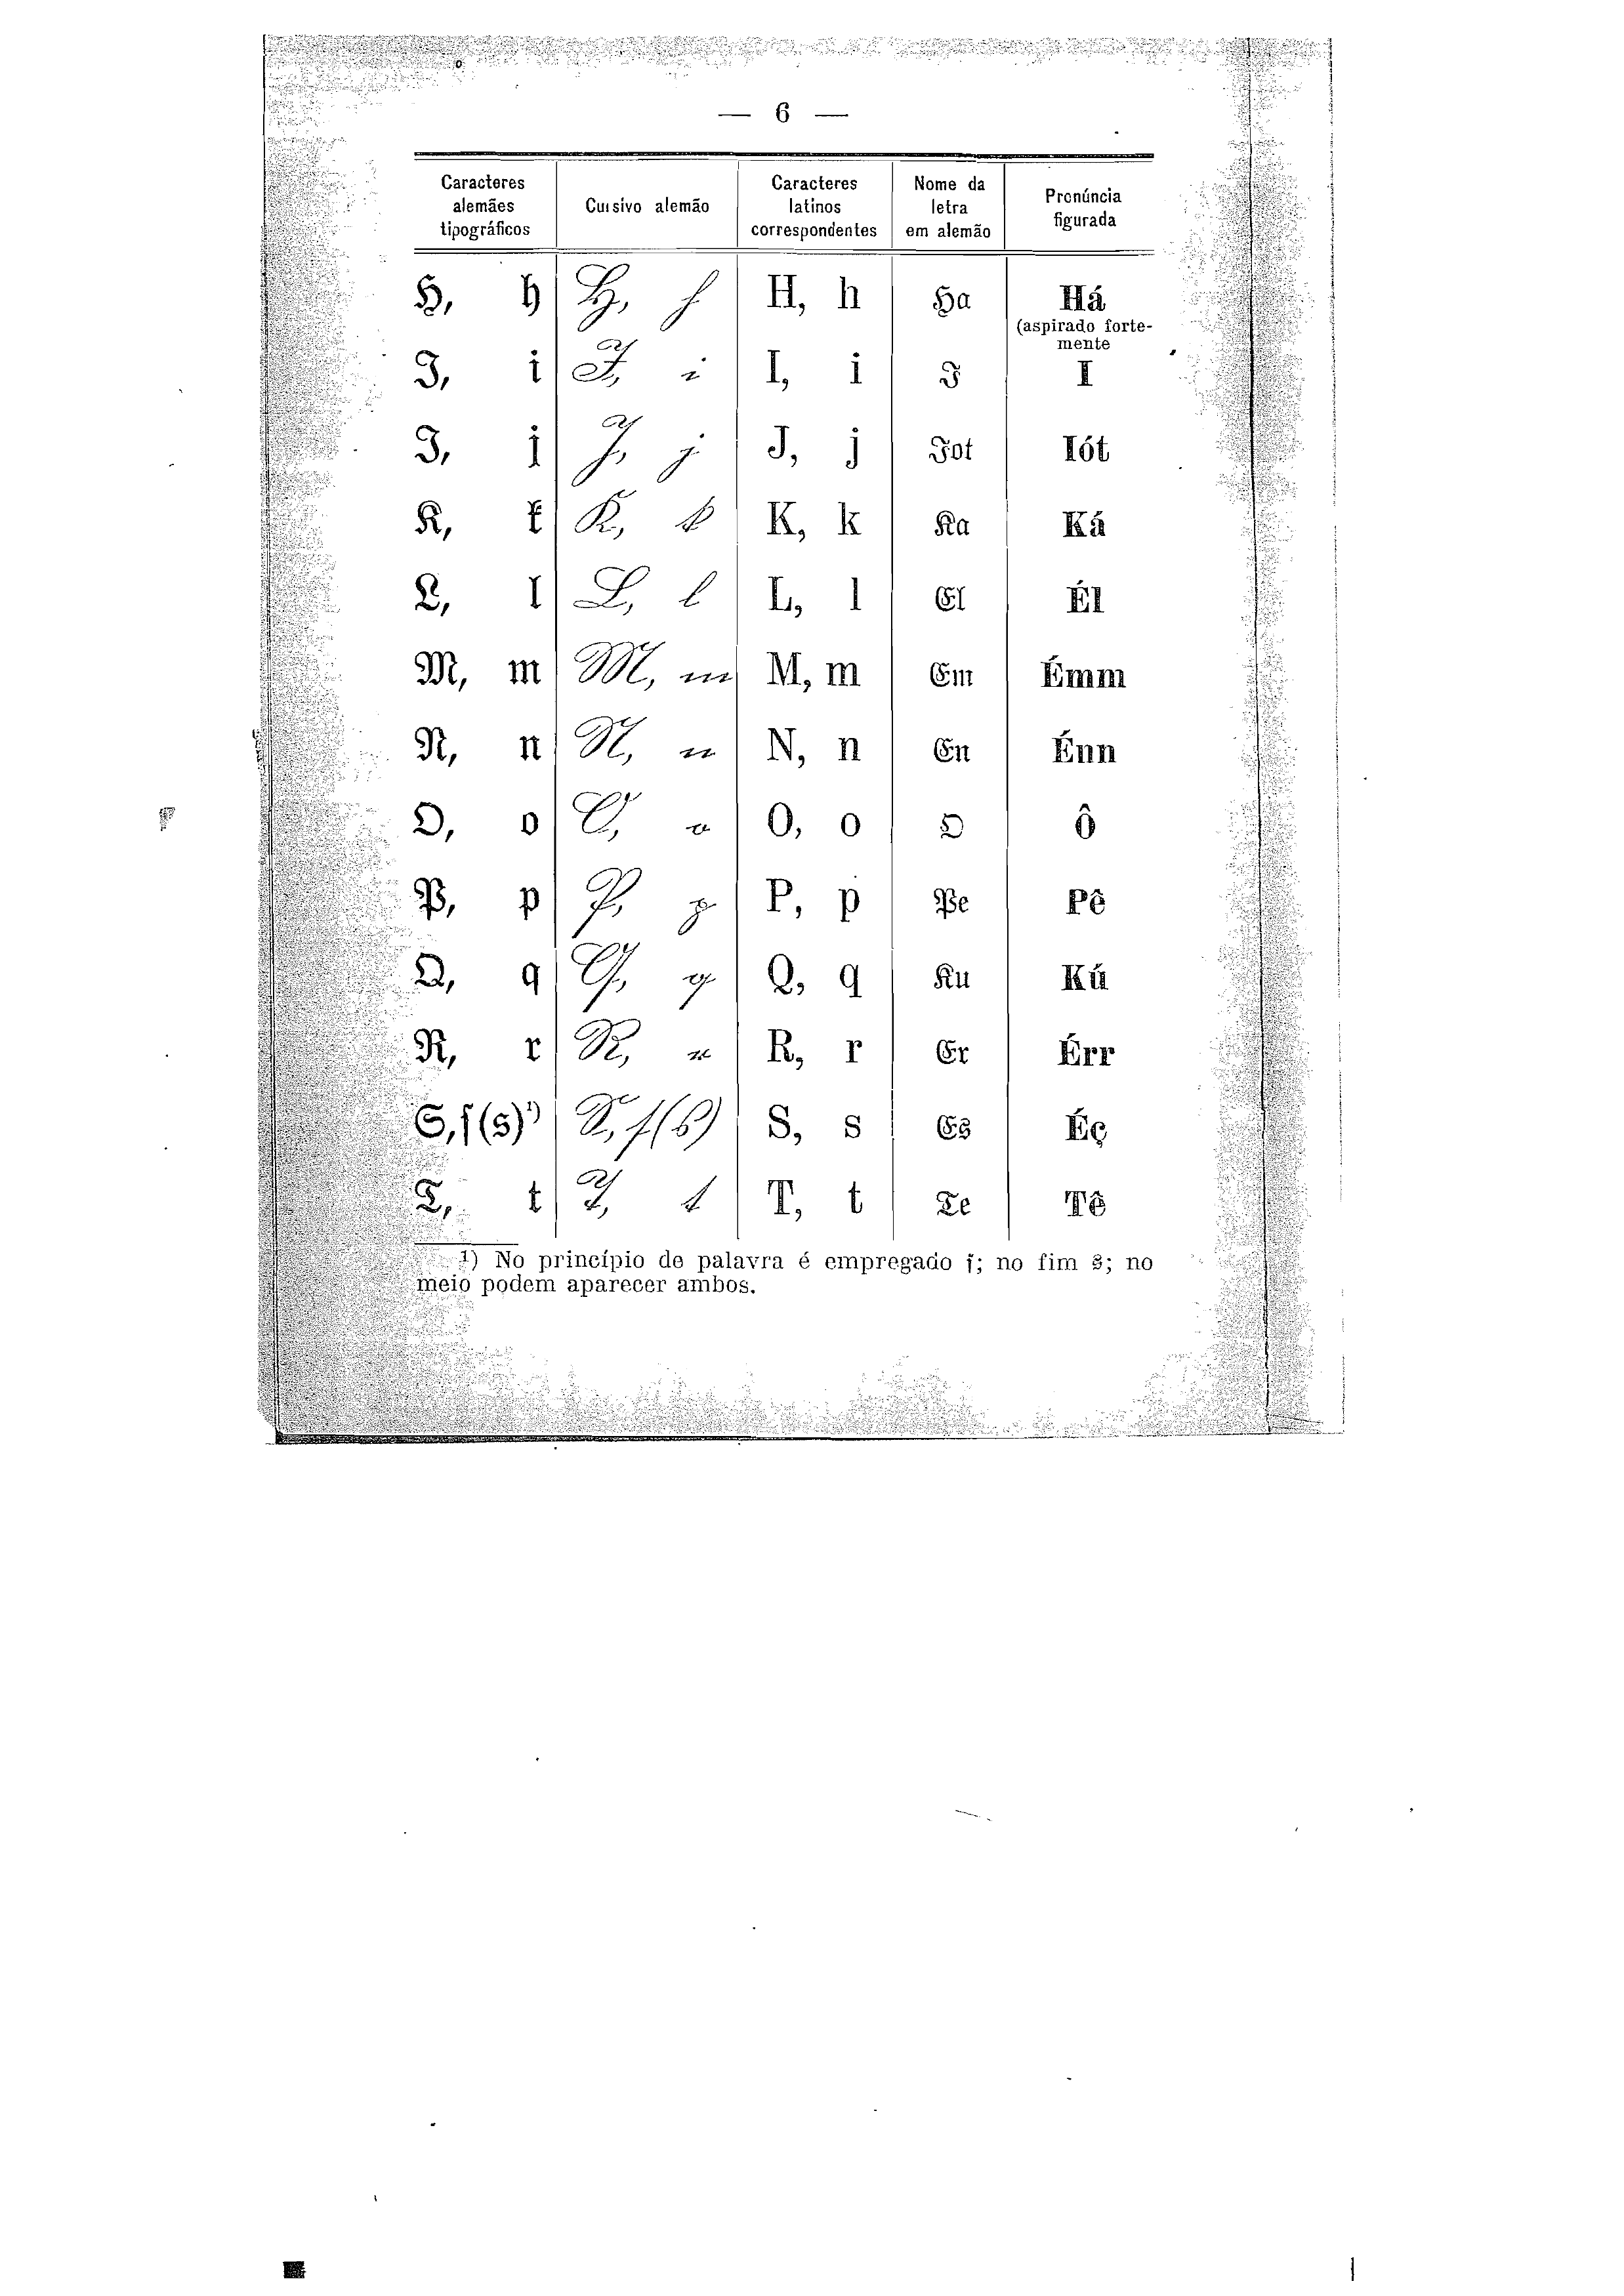 — 6 —
Caracteres alemães tipográficos | Cursivo alemão | Caracteres latinos correspondentes | Nome da letra em alemão | Pronúncia figurada
H, h | H, h | H, h | Ha | Há (aspirado fortemente
I, i | I, i | I, i | I | I
J, j | J, j | J, j | Jot | Iót
K, k | K, k | K, k | Ka | Ká
L, l | L, l | L, l | El | Él
M, m | M, m | M, m | Em | Émm
N, n | N, n | N, n | En | Énn
O, o | O, o | O, o | O | Ô
P, p | P, p | P, p | Pe | Pê
Q, q | Q, q | Q, q | Ku | Kú
R, r | R, r | R, r | Er | Érr
S, ſ (s)¹) | S, ſ (s) | S, s | Es | Éç
T, t | T, t | T, t | Te | Tê
¹) No princípio de palavra é empregado ſ; no fim s; no
meio podem aparecer ambos.